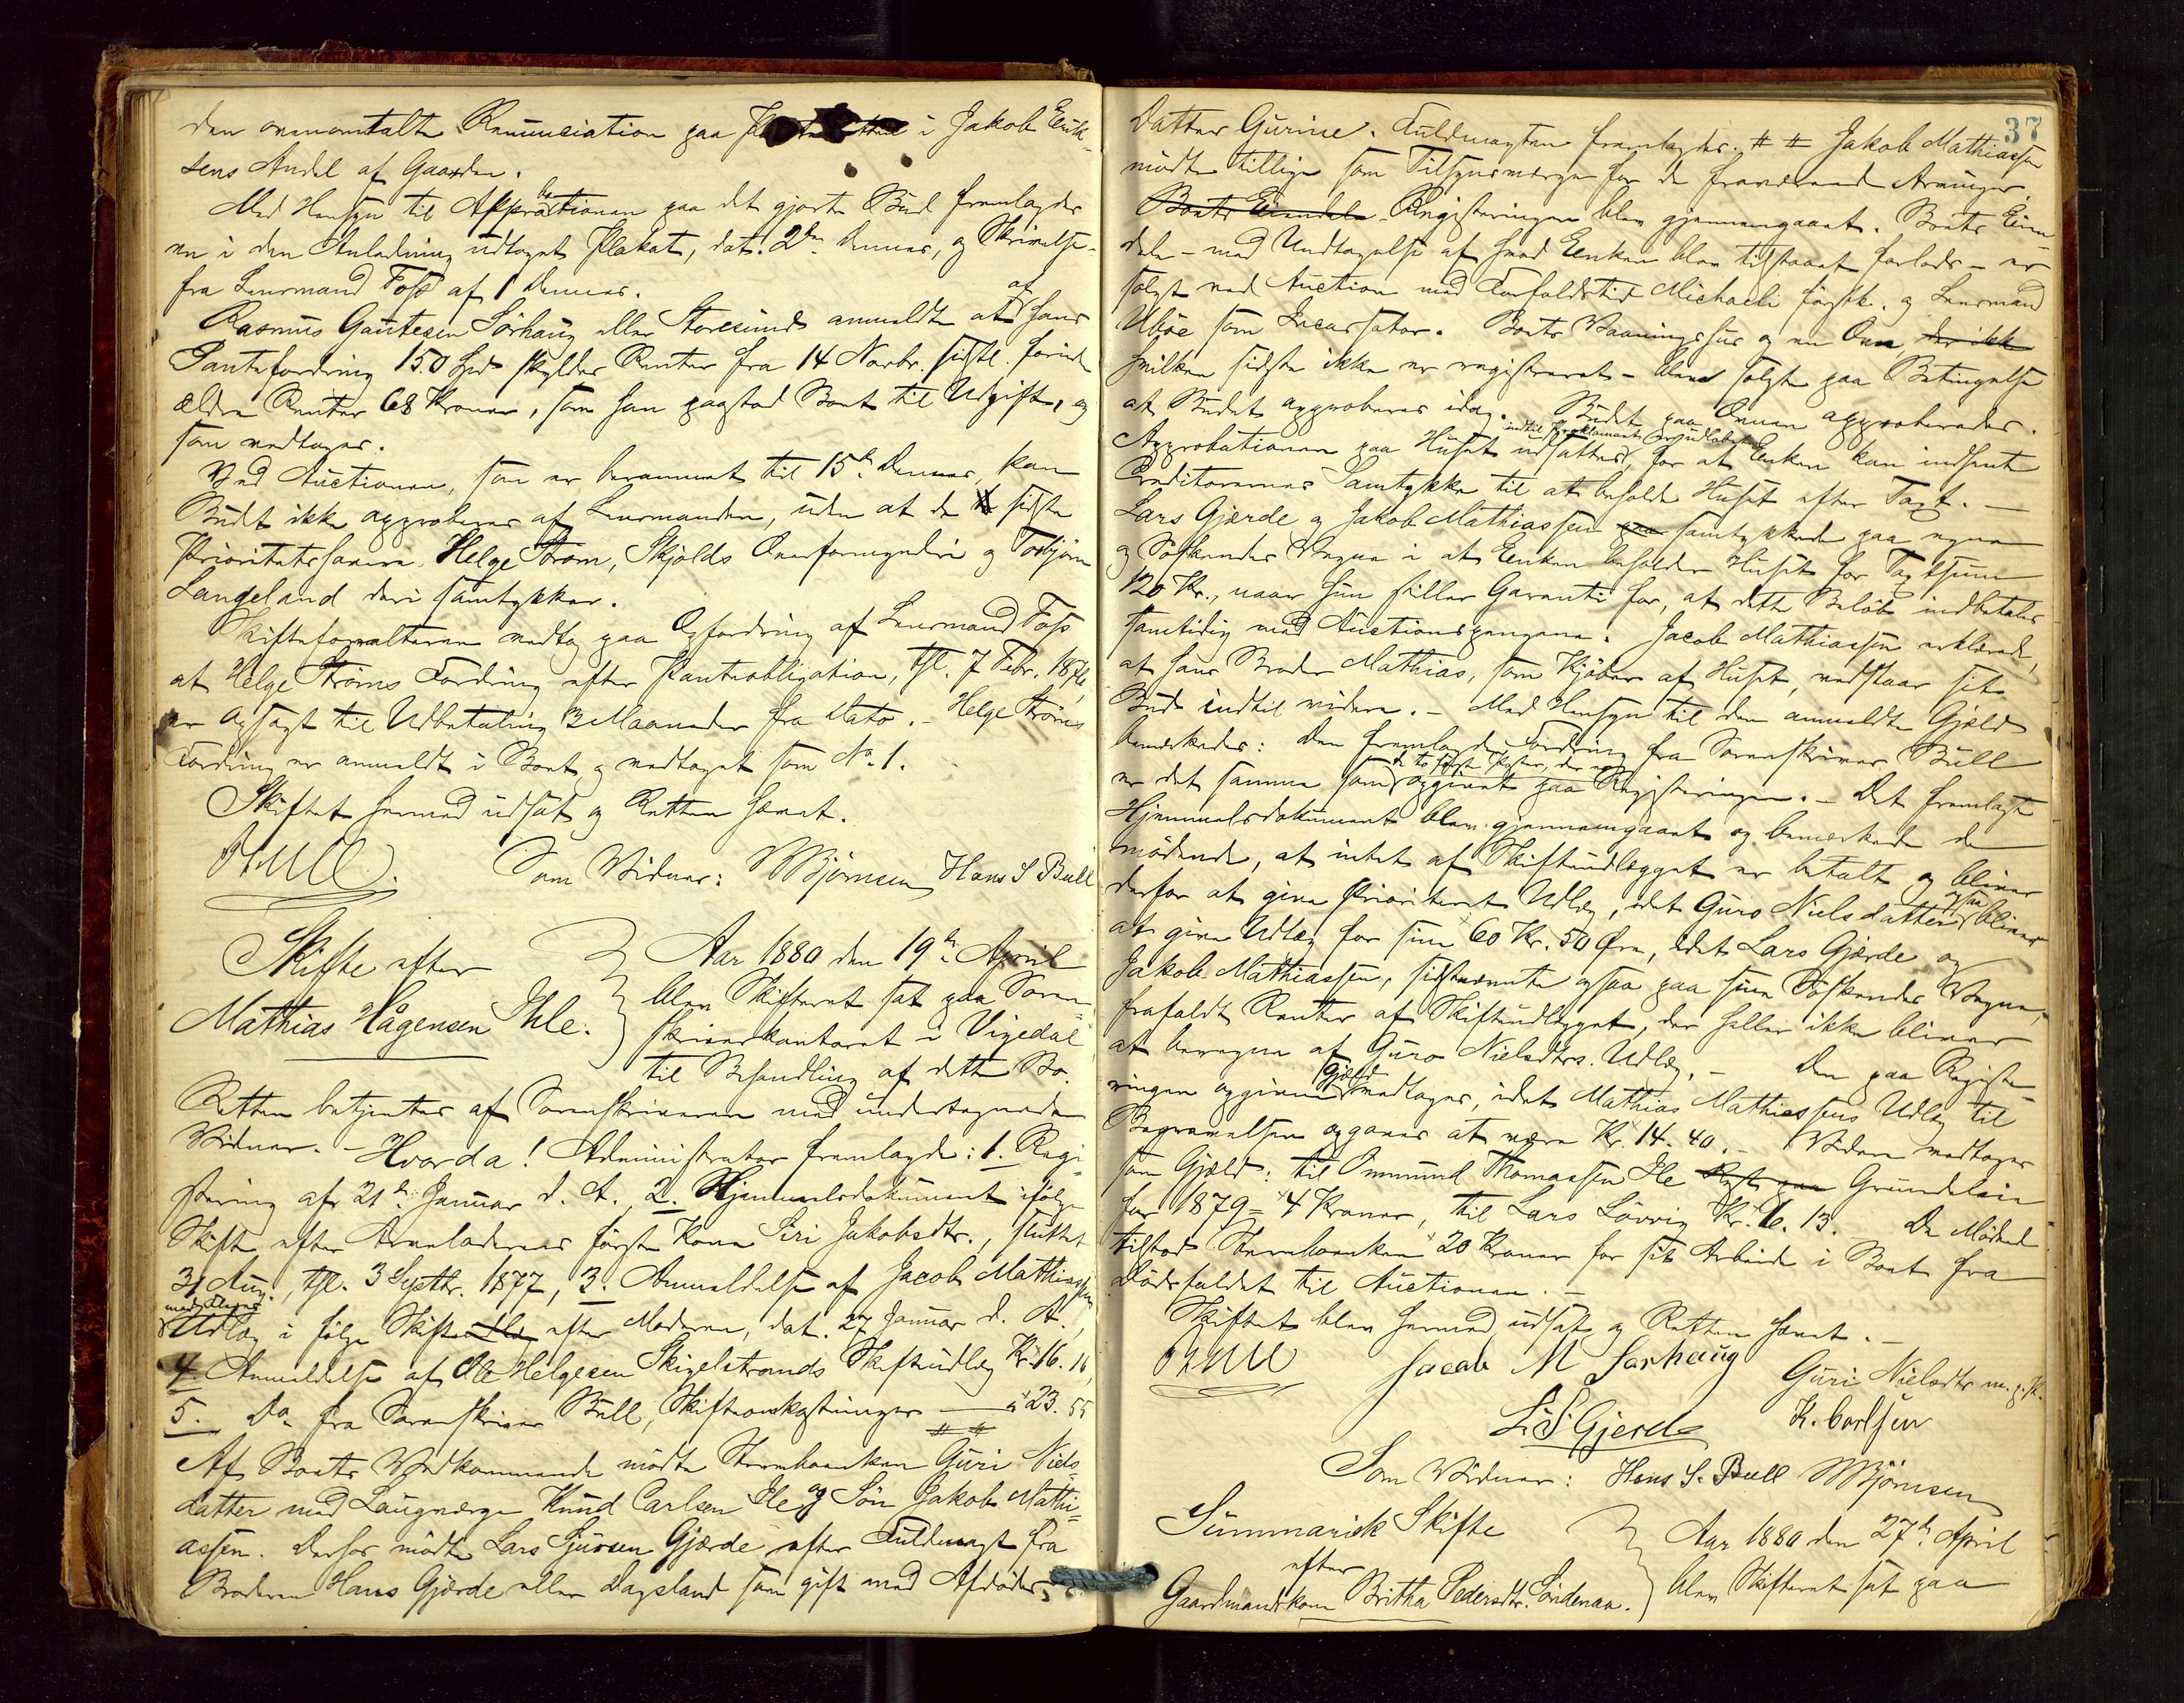 den ovenomtalte Renunciation paa i Jakob Erik-
sens Andel af Gaarden.
Med Hensyn til Approbationen paa det gjorte Bud fremlagdes
en i den Anledning udtaget Plakat, dat. 2den dennes, og Skrivelse
fra Lensmand Foss af 1 dennes.
Rasmus Gautesen Sörhaug eller Storesund anmeldte at af hans
Pantefordring 150 Spd skyldes Renter fra 14 Novbr. sidstl. foruden
ældre Renter 68 Kroner, som han paastod Boet til Udgift, og
som vedtoges.
Ved Auctionen, som er berammet til 15de dennes, kan
Budet ikke approberes af Lensmanden, uden at de sidste
Prioritetshavere, Helge Ström, Skjolds Overformynderi og Torbjörn
Langeland deri samtykker.
Skifteforvalteren vedtog paa Opfordring af Lensmand Foss
at Helge Ströms Fordring efter Pantobligation, thl. 7 Febr. 1876,
er opsagt til Udbetaling 3 Maaneder fra Dato. - Helge Ströms
Fordring er anmeldt i Boet og vedtaget som No. 1.
Skiftet hermed udsat og Retten hævet.
Bull.
Som Vidner: Bjørnsen Hans S Bull
Skifte efter
Mathias Hågensen Ihle.
Aar 1880 den 19de April
blev Skifteret sat paa Soren-
skriverkontoret i Vigedal
til Behandling af dette Bo.
Retten betjentes af Sorenskriveren med undertegnede
Vidner. - Hvorda! Administrator fremlagde: 1. Regi-
strering af 21de Januar d. A., 2. Hjemmelsdokument ifölge
Skifte efter Arveladerens förste Kone Siri Jakobsdtr., sluttet
31 Aug., thl. 3 Septbr. 1877, 3. Anmeldelse af Jacob Mathiassen
Udlæg i fölge Skifte efter Moderen, dat. 27 Januar d. A.,
4. Anmeldelse af Ole Helgesen Skigelstrands Skifteudlæg Kr. 16. 16,
5. Do. fra Sorenskriver Bull, Skifteomkostninger — " 23. 55
Af Boets Vedkommende mödte Stervboenken Guri Niels
datter med Laugværge Knud Carlsen Ile og Sön Jakob Mathi-
assen. Derhos mödte Lars Sjursen Gjærde efter Fuldmagt fra
Broderen Hans Gjörde eller Dagsland som gift med Afdödes
37
Datter Gurine. Fuldmagten fremlagdes. # # Jakob Mathiassen
mödte tillige som Tilsynsværge for de fraværende Arvinger.
Boets Eiendele Registreringen blev gjennemgaaet. Boets Eien-
dele - med Undtagelse af hvad Enken blev tilstaaet forlods - er
solgt ved Auction med Forfaldstid Michaeli förstk. og Lensmand
Uböe som Incassator. Boets Vaaningshus og en Ovn, der ikke
hvilken sidste ikke er registreret - blev solgt paa Betingelse
at Budet approberes idag. Budet paa Ovnen approberedes.
Approbationen paa Huset udsattes indtil Proklamaets Udlöb, for at Enken kan indhente
Creditorernes Samtykke til at beholde Huset efter Taxt. —
Lars Gjærde og Jakob Mathiassen paa samtykkede paa egne
og Söskendes Vegne i at Enken beholder Huset for Taxtsum
120 Kr., naar hun stiller Garanti for, at dette Belöb indbetales
samtidig med Auctionspengene. Jacob Mathiassen erklærede,
at hans Broder Mathias, som Kjöber af Huset, vedstaar sit
Bud indtil videre. - Med Hensyn til den anmeldte Gjæld
bemærkedes: Den fremlagde Fordring fra Sorenskriver Bull
er det samme som de to förste Poster, der er opgivet paa Registreringen. - Det fremlagte
Hjemmelsdokument blev gjennemgaaet og bemærkede de
mödende, at intet af Skifteudlægget er betalt og bliver
derfor at give prioriteret Udlæg, idet Guro Nielsdatter ogsaa bliver
at give Udlæg for sine 60 Kr. 50 Öre, idet Lars Gjærde og
Jakob Mathiassen, sidstnævnte ogsaa paa sine Söskendes Vegne,
frafaldt Renter af Skifteudlægget, der heller ikke bliver
at beregne af Guro Nielsdtrs. Udlæg. - Den paa Registre-
ringen opgivne Gjæld vedtoges, idet Mathias Mathiassens Udlæg til
Begravelsen opgaves at være Kr. 14. 40. - Videre vedtoges
som Gjæld: til Ommund Thomassen Ile Grundleie
for 1879 = 4 Kroner, til Lars Lövvig Kr. 6. 13. De Mödende
tilstod Stervboenken 20 Kroner for sit Arbeide i Boet fra
Dödsfaldet til Auctionen. -
Skiftet blev hermed udsat og Retten hævet. -
Bull Jacob M Sørhaug Guri Nielsdtr m. p. P.
L. S. Gjerde K. Carlsen
Som Vidner: Hans S. Bull Bjørnsen
Summarisk Skifte
efter
Gaardmandskone Britha Pedersdtr. Söndenaa.
Aar 1880 den 27de April
blev Skifteret sat paa